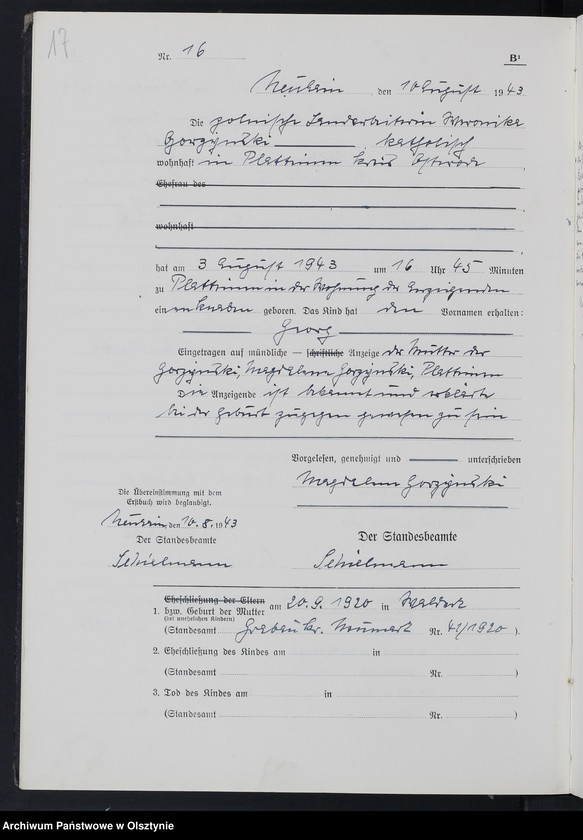 17
Nr. 16
B¹
Neuhain, den 10 August 1943
Die polnische Landarbeiterin Weronika
Gorzynski, katholisch
wohnhaft in Plattainen Kreis Osterode
Ehefrau des
wohnhaft
hat am 3 August 1943 um 16 Uhr 45 Minuten
zu Plattainen in der Wohnung der Anzeigenden
einen Knaben geboren. Das Kind hat den Vornamen erhalten:
Georg
Eingetragen auf mündliche — schriftliche Anzeige der Mutter der
Gorzynski, Magdalena Gorzynski, Plattainen
Die Anzeigende ist bekannt und erklärte
bei der Geburt zugegen gewesen zu sein
Vorgelesen, genehmigt und unterschrieben
Magdalena Gorzynski
Die Übereinstimmung mit dem
Erstbuch wird beglaubigt.
Neuhain, den 10. 8. 1943
Der Standesbeamte
Schielmann
Der Standesbeamte
Schielmann
1. Eheschließung der Eltern
bzw. Geburt der Mutter am 20. 9. 1920 in
(bei unehelichen Kindern)
(Standesamt Grabau Kr. Neumark Nr. 41/1920 ).
2. Eheschließung des Kindes am in
(Standesamt Nr. )
3. Tod des Kindes am in
(Standesamt Nr. )
Archiwum Państwowe w Olsztynie